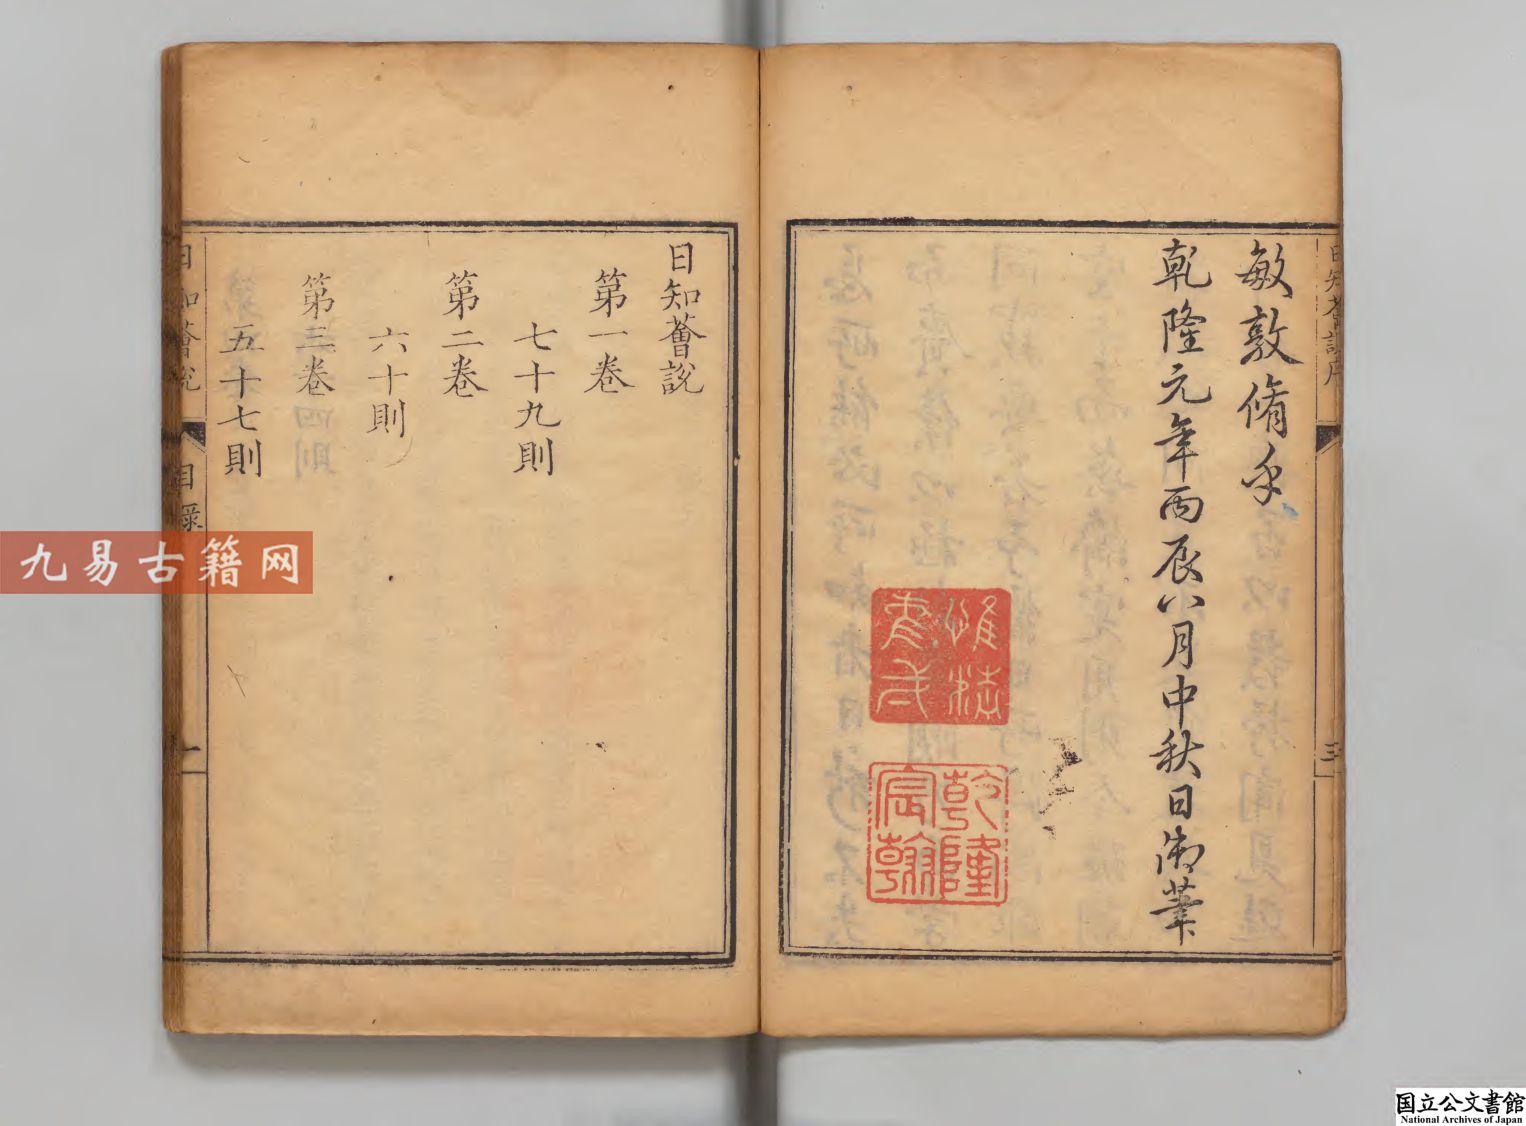 敏敦脩乎
乾隆元年丙辰八月中秋日御筆
惟精
惟一
乾隆
宸翰
日知薈說序
三
日知薈說
第一卷
七十九則
第二卷
六十則
第三卷
五十七則
日知薈說
目錄
一
九易古籍网
国立公文書館
National Archives of Japan